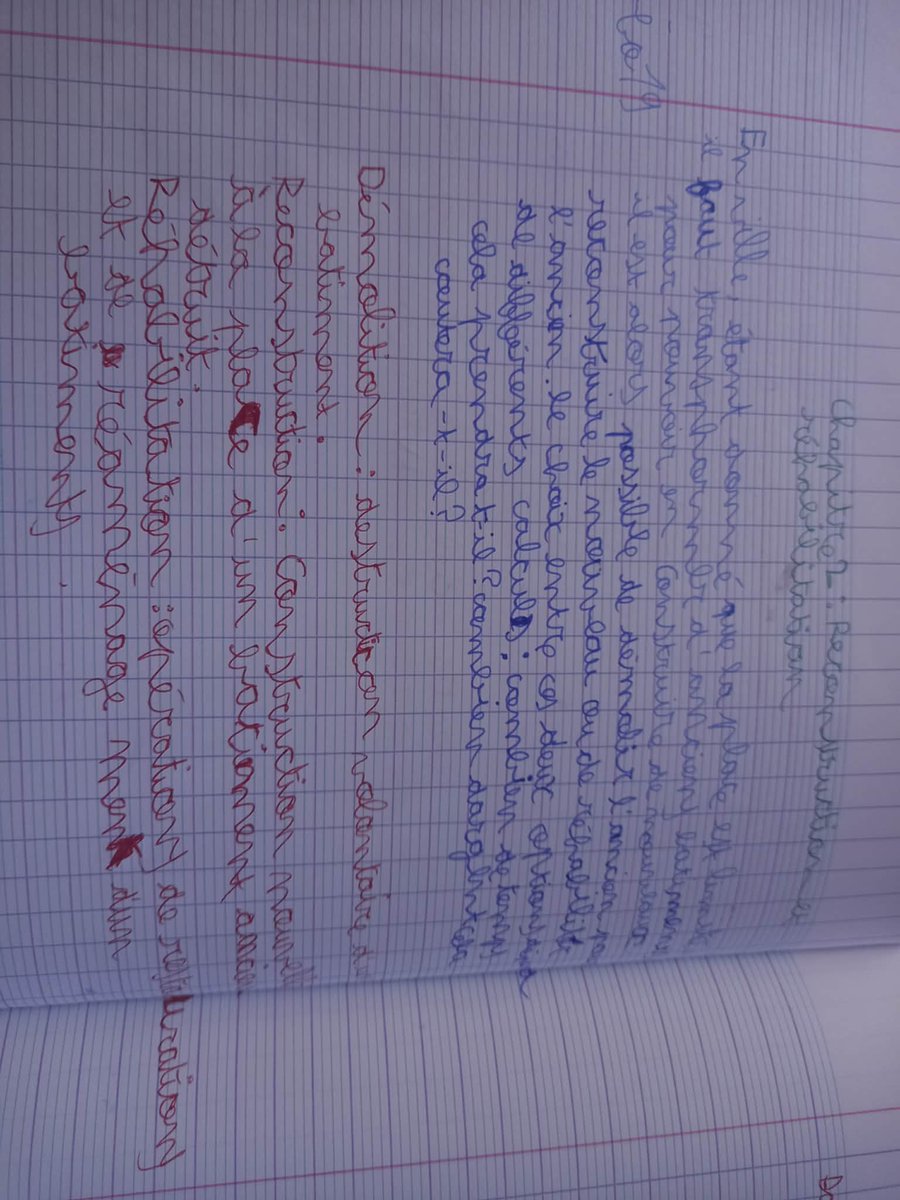 Chapitre 2 : Reconstruction et
réhabilitation
En ville, étant donné que la place est limité
il faut transphormer d'anciens batiments
pour pouvoir en construire de nouveaux
il est alors possible de démolir l'ancien
reconstruire le nouveau ou de réhabilit
l'ancien. le choix entre ces deux options
de différents calculs : combien de temps
cela prendra-t-il? combien dargent cela
coutera-t-il?
Démolition : destruction volontaire
batiment.
Reconstruction : Construction nouvelle
à la place d'un batiment
détruit.
Réhabilitation : opérations de restaurations
et de réaménage ment dun
batiments.